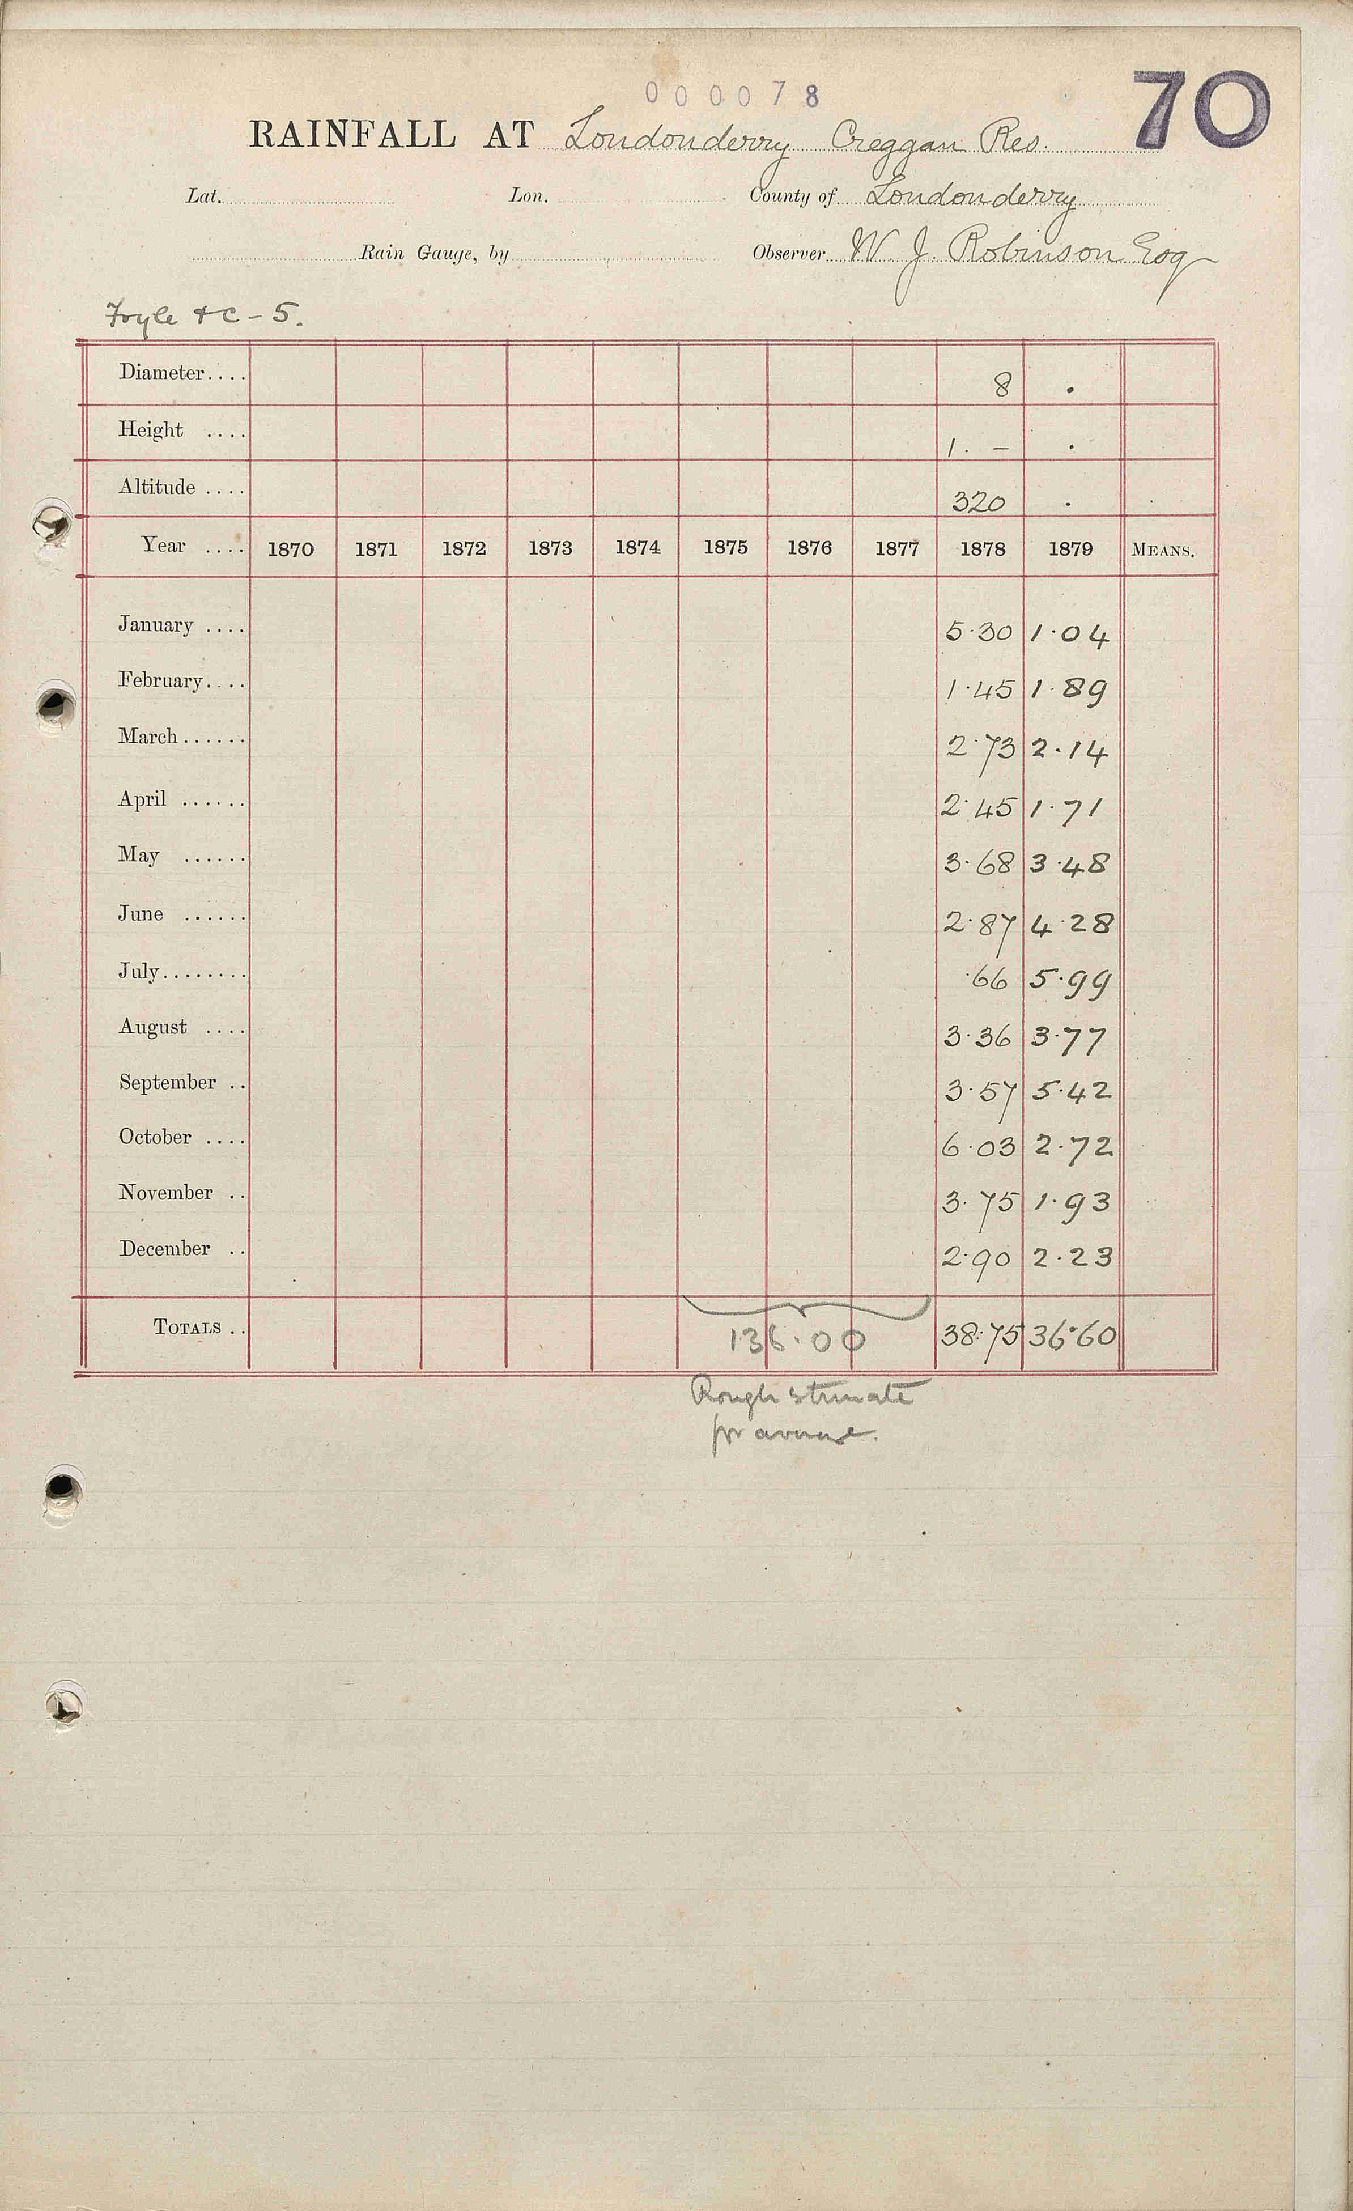 000078
70
RAINFALL AT Londonderry Creggan Res.
Lat. Lon. County of Londonderry
Rain Gauge, by Observer W J. Robinson Esq
Foyle &c - 5.
Diameter.... 8 .
Height .... 1. - .
Altitude .... 320 .
Year .... 1870 1871 1872 1873 1874 1875 1876 1877 1878 1879 MEANS.
January .... 5.30 1.04
February.... 1.45 1.89
March...... 2.73 2.14
April ...... 2.45 1.71
May ...... 3.68 3.48
June ...... 2.87 4.28
July........ .66 5.99
August .... 3.36 3.77
September .. 3.57 5.42
October .... 6.03 2.72
November .. 3.75 1.93
December .. 2.90 2.23
TOTALS .. 136.00 38.75 36.60
Rough estimate
for average.